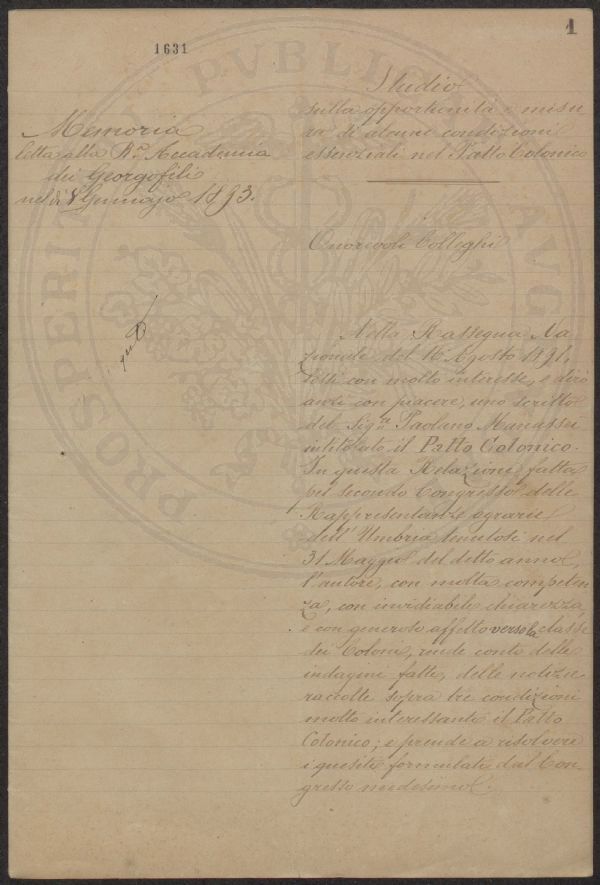 1631
1
Memoria
letta alla R.a Accademia
dei Georgofili
nel dì 8 Gennajo 1893.
Studio
sulla opportunità e misu
ra di alcune condizioni
essenziali nel Patto Colonico
Onorevoli Colleghi
Nella Rassegna Na
zionale del 16 Agosto 1891,
lessi con molto interesse, e dirò
anzi con piacere, uno scritto
del Sig.r Paolano Manassei
intitolato il Patto Colonico.
In questa Relazione, fatta
pel secondo Congresso delle
Rappresentanze agrarie
dell'Umbria tenutosi nel
31 Maggio del detto anno,
l'autore, con molta competen
za, con invidiabile chiarezza,
e con generoso affetto verso la classe
dei Coloni, rende conto delle
indagini fatte, delle notizie
raccolte sopra tre condizioni
molto interessanti il Patto
Colonico; e prende a risolvere
i quesiti formulati dal Con-
gresso medesimo.
PROSPERITATI PUBLICAE AUG